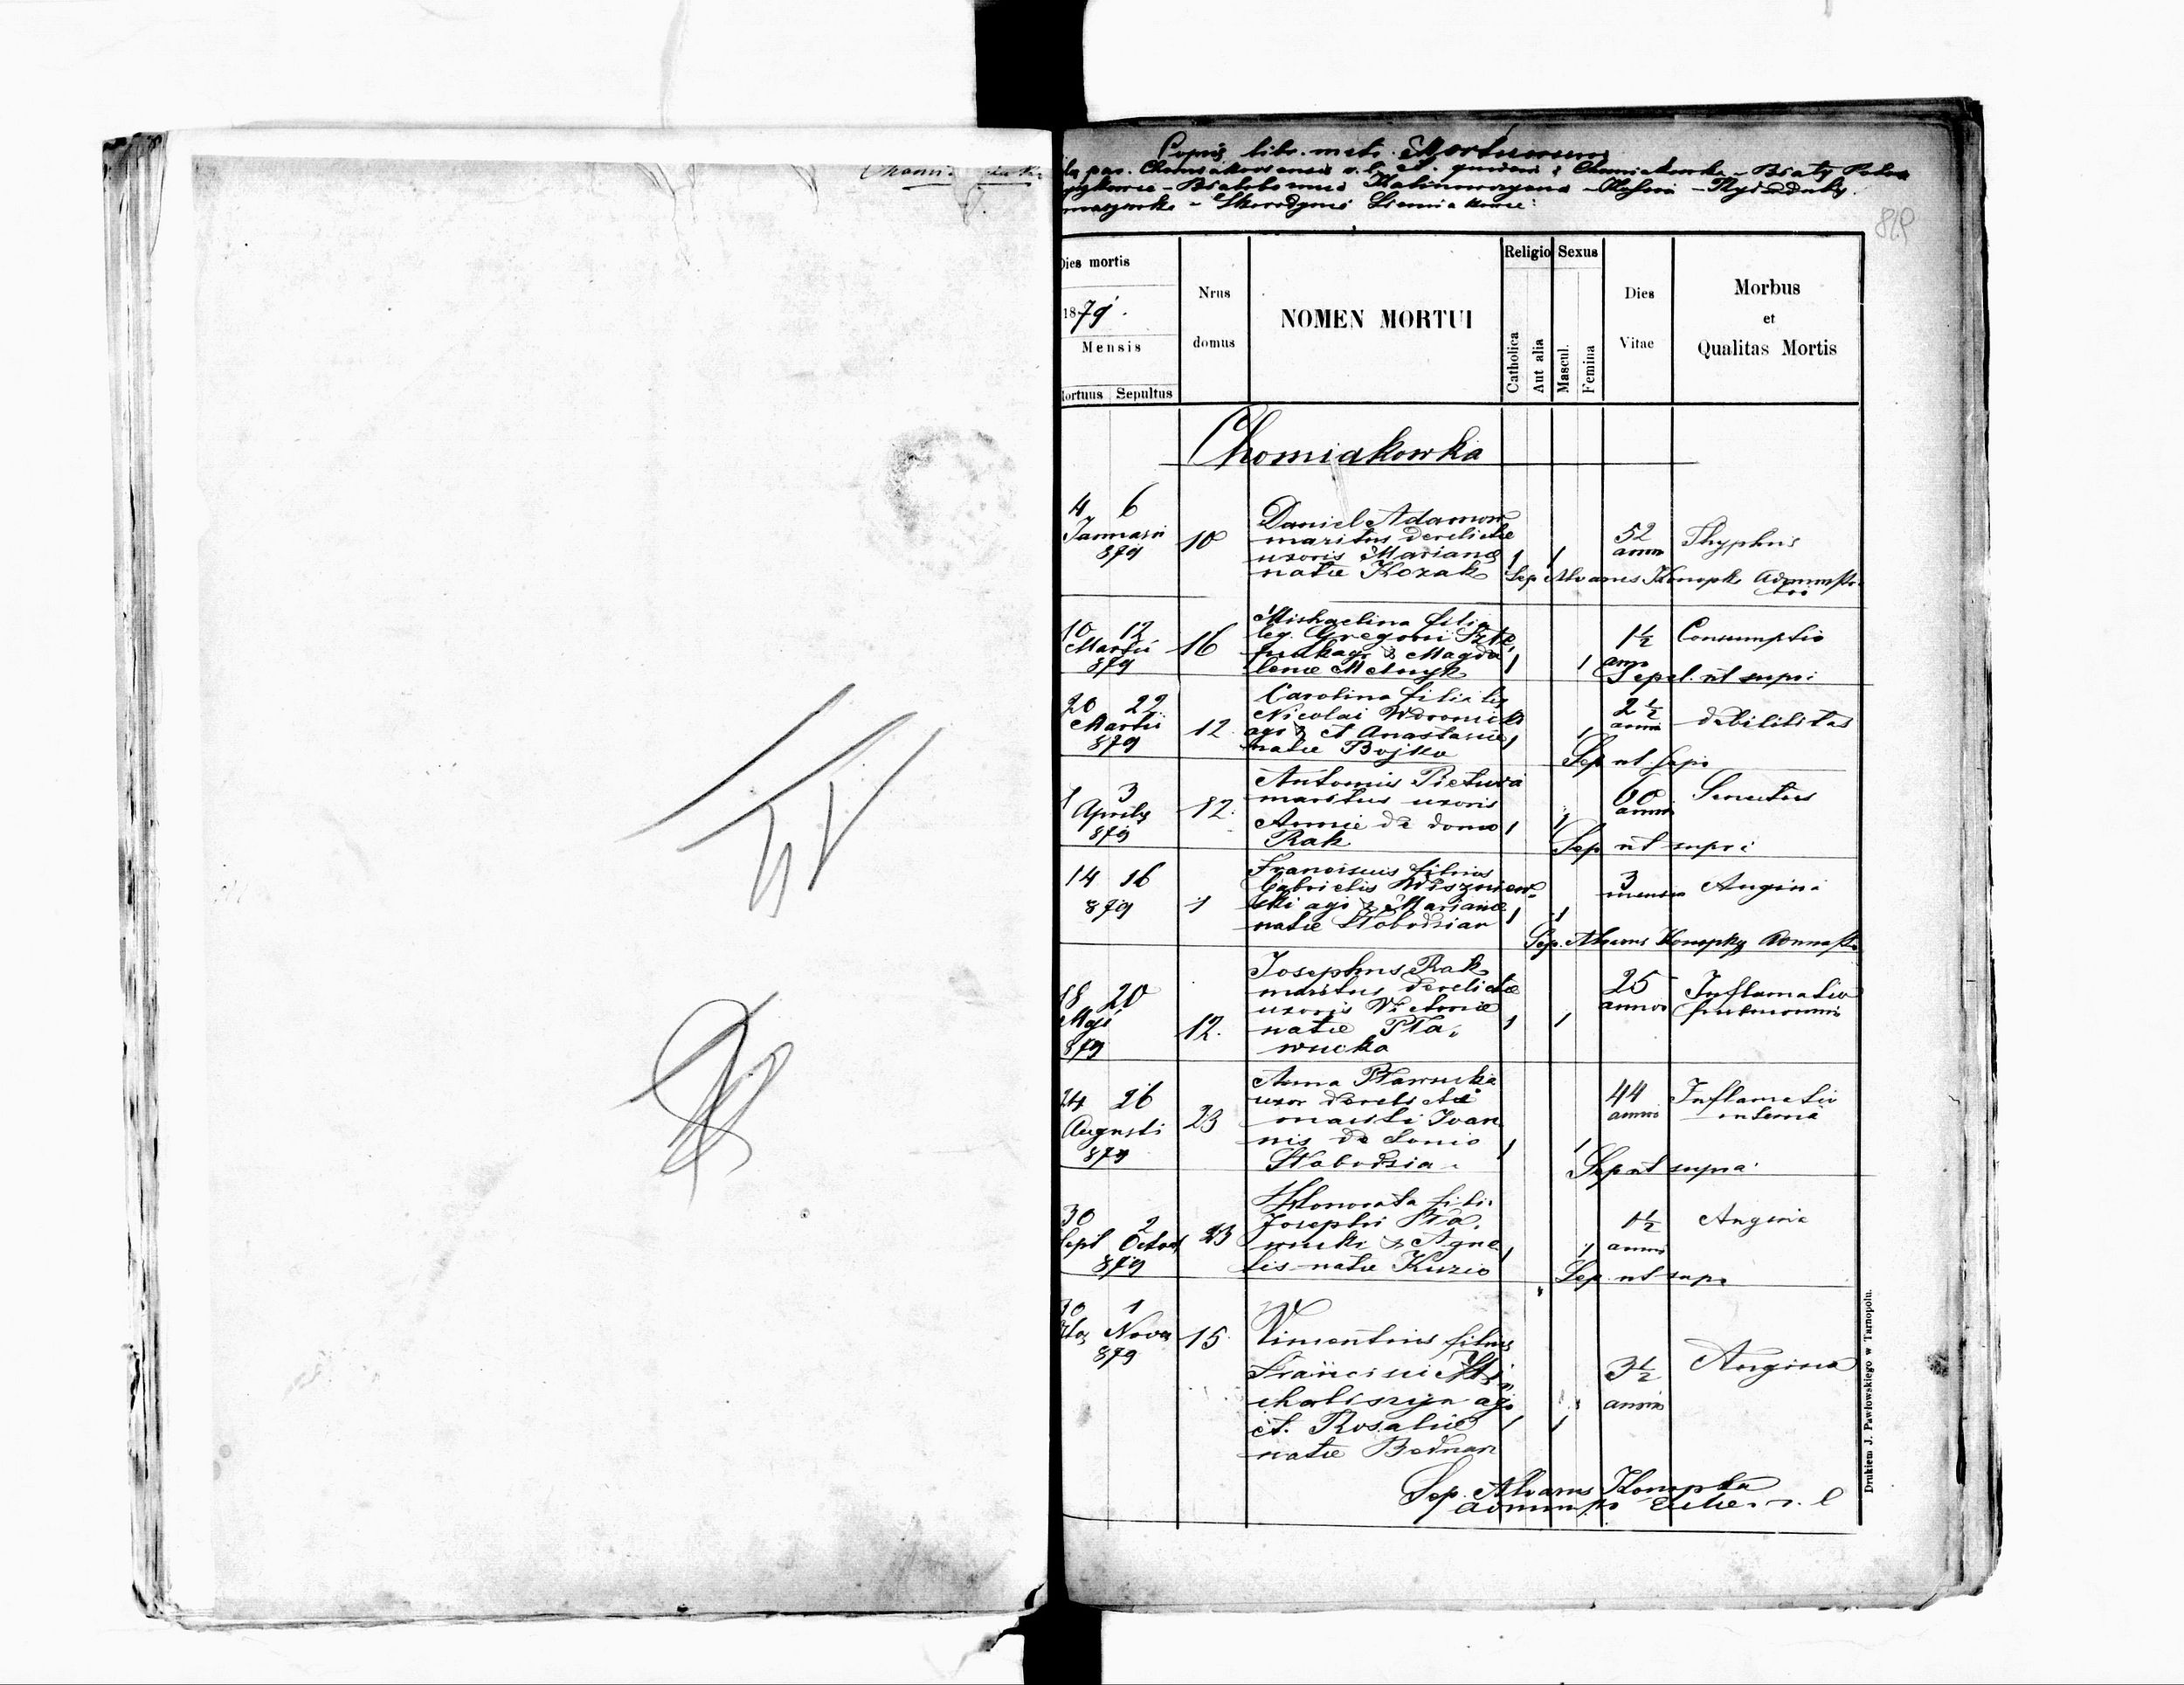 Copia libr. metr. Mortuorum
par. Chomiakovensis r. l. et. quidem: Chomiakówka - Biały Potok
Białobożnica Kalinowszczyzna - Rydoduby
Skorodyńce Siemiakowce:
819
Dies mortis
1879.
Mensis
Mortuus Sepultus
Nrus
domus
NOMEN MORTUI
Religio
Catholica
Aut alia
Sexus
Mascul.
Femina
Dies
Vitae
Morbus
et
Qualitas Mortis
Chomiakowka
4 6
Januarii
879
10
Daniel Adamow
maritus derelictae
uxoris Marianae
natae Kozak
1 1
52
annor
Thyphus
Sep Alvarus Konopka Administra
tor
10 12
Martii
879
16
Mishaelina filia
leg. Gregorii
& Magda
lenae Melnyk
1 1
1½
ann
Consumptio
Sepel. ut supri
20 22
Martii
879
12
Carolina filia leg
Nicolai
agr et Anastasiae
natae Bojko
1 1
2½
anni
debilitas
Sep ut supr
1 3
Aprilis
879
12.
Antonius Pietura
maritus uxoris
Annae de domo
Rak
1 1
60
annor
Senectus
Sep ut supri
14 16
879
1
Franciscus filius
Gabrielis Wiszniew
ski agr & Marianae
natae Słobodzian
1 1
3
menses
Angina
Sep. Alvarus Konopka Adminstr
18 20
Maji
879
12.
Josephus Rak
maritus derelictae
uxoris Victoriae
natae Pła
wucka
1 1
25
annor
Inflamatio
pulmonum
24 26
Augusti
879
23
Anna Pławucka
uxor derelicti
mariti Joan
nis de domo
Słobodzia
1 1
44
annor
Inflamatio
interna
Sep ut supra
30 2
Sept Octob
879
23
Honorata fili
Josephi Pła
wucki & Agne
tis natae Kuzio
1 1
1½
anni
Angina
Sep. ut supr
30 1
Nove
879
15
Vincentius filius
Francisci Mi
chaliszyn agr
et. Rosaliae
natae Bednar
1 1
3½
annor
Angina
Sep. Alvarus Konopka
adminstr r. l
Drukiem J. Pawłowskiego w Tarnopolu.